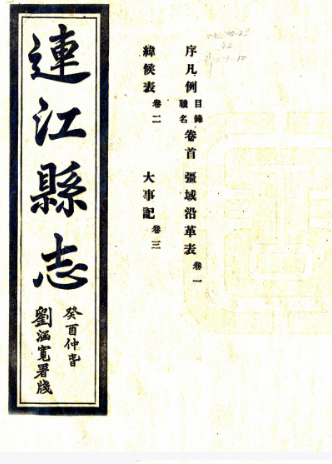 序凡例 目錄 職名 卷首 疆域沿革表 卷一
緯候表 卷二 大事記 卷三
連江縣志
癸酉仲旾
劉涵寬署牋